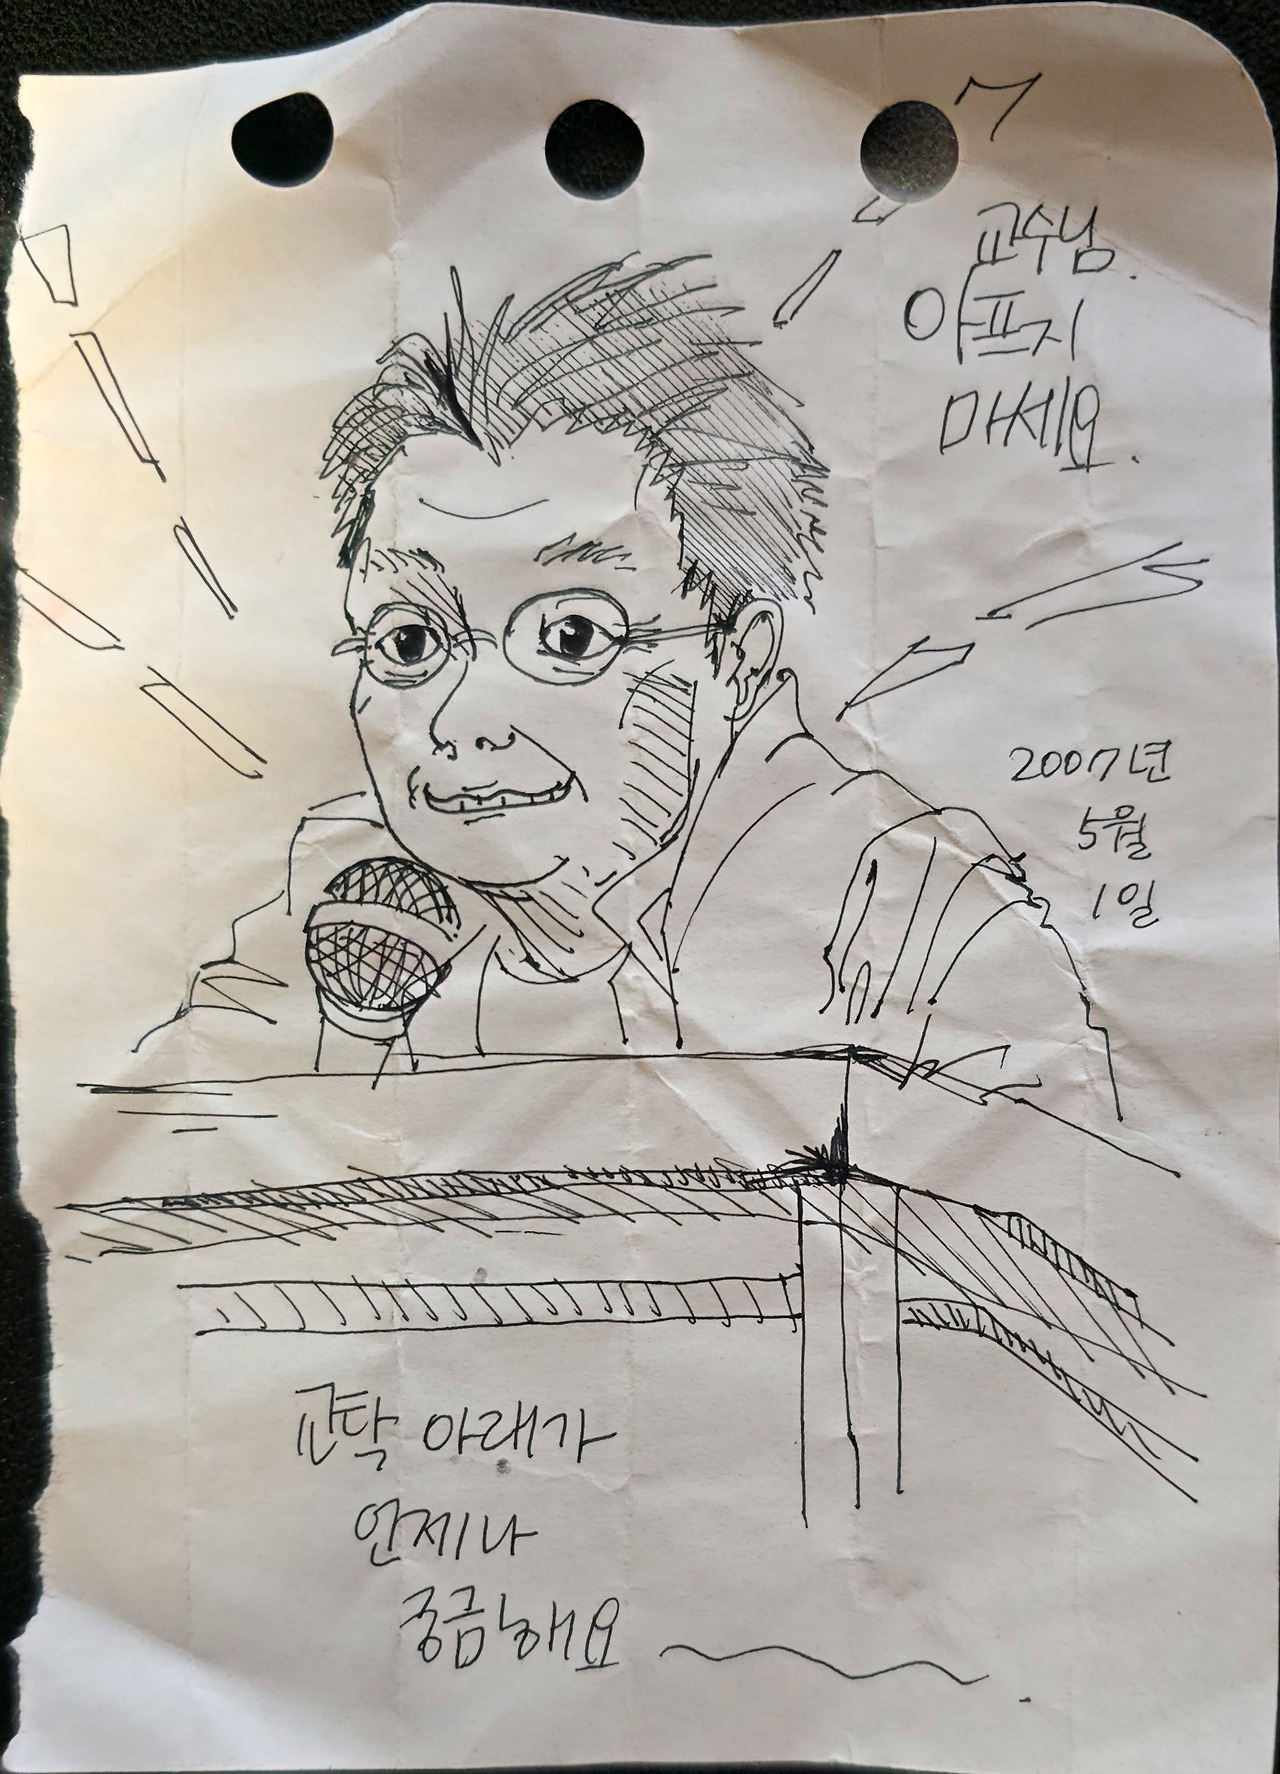 교수님.
아프지
마세요.
2007년
5월
1일
교탁 아래가
언제나
궁금해요